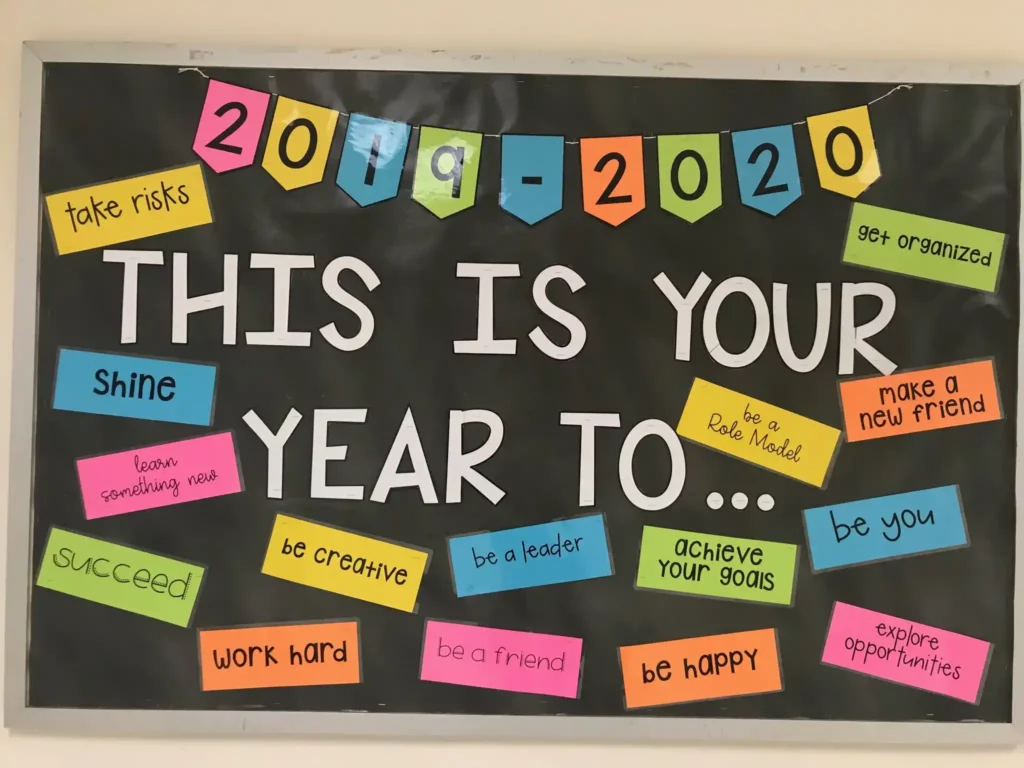 2019-2020
take risks
get organized
THIS IS YOUR
Shine
make a
new friend
be a
Role Model
YEAR TO...
learn
something new
be you
succeed
be creative
be a leader
achieve
your goals
work hard
be a friend
be happy
explore
opportunities